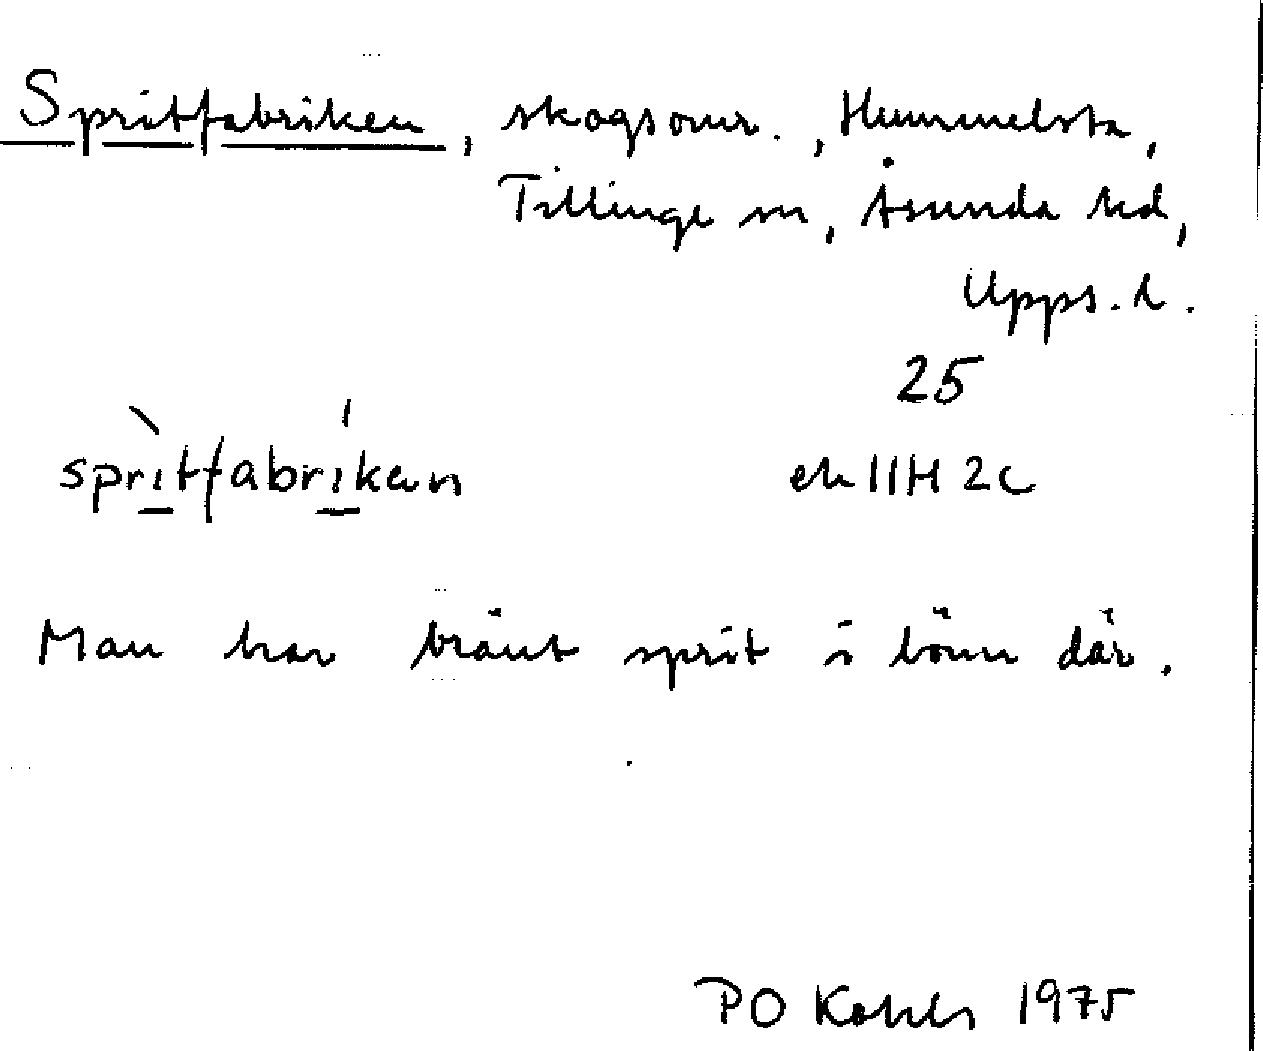 Spritfabriken, skogsomr., Hummelsta,
Tillinge sn, Åsunda hd,
Upps. l.
25
sprìtfabríkan ek 11H 2c
Man har bränt sprit i bönn där.
PO 1975